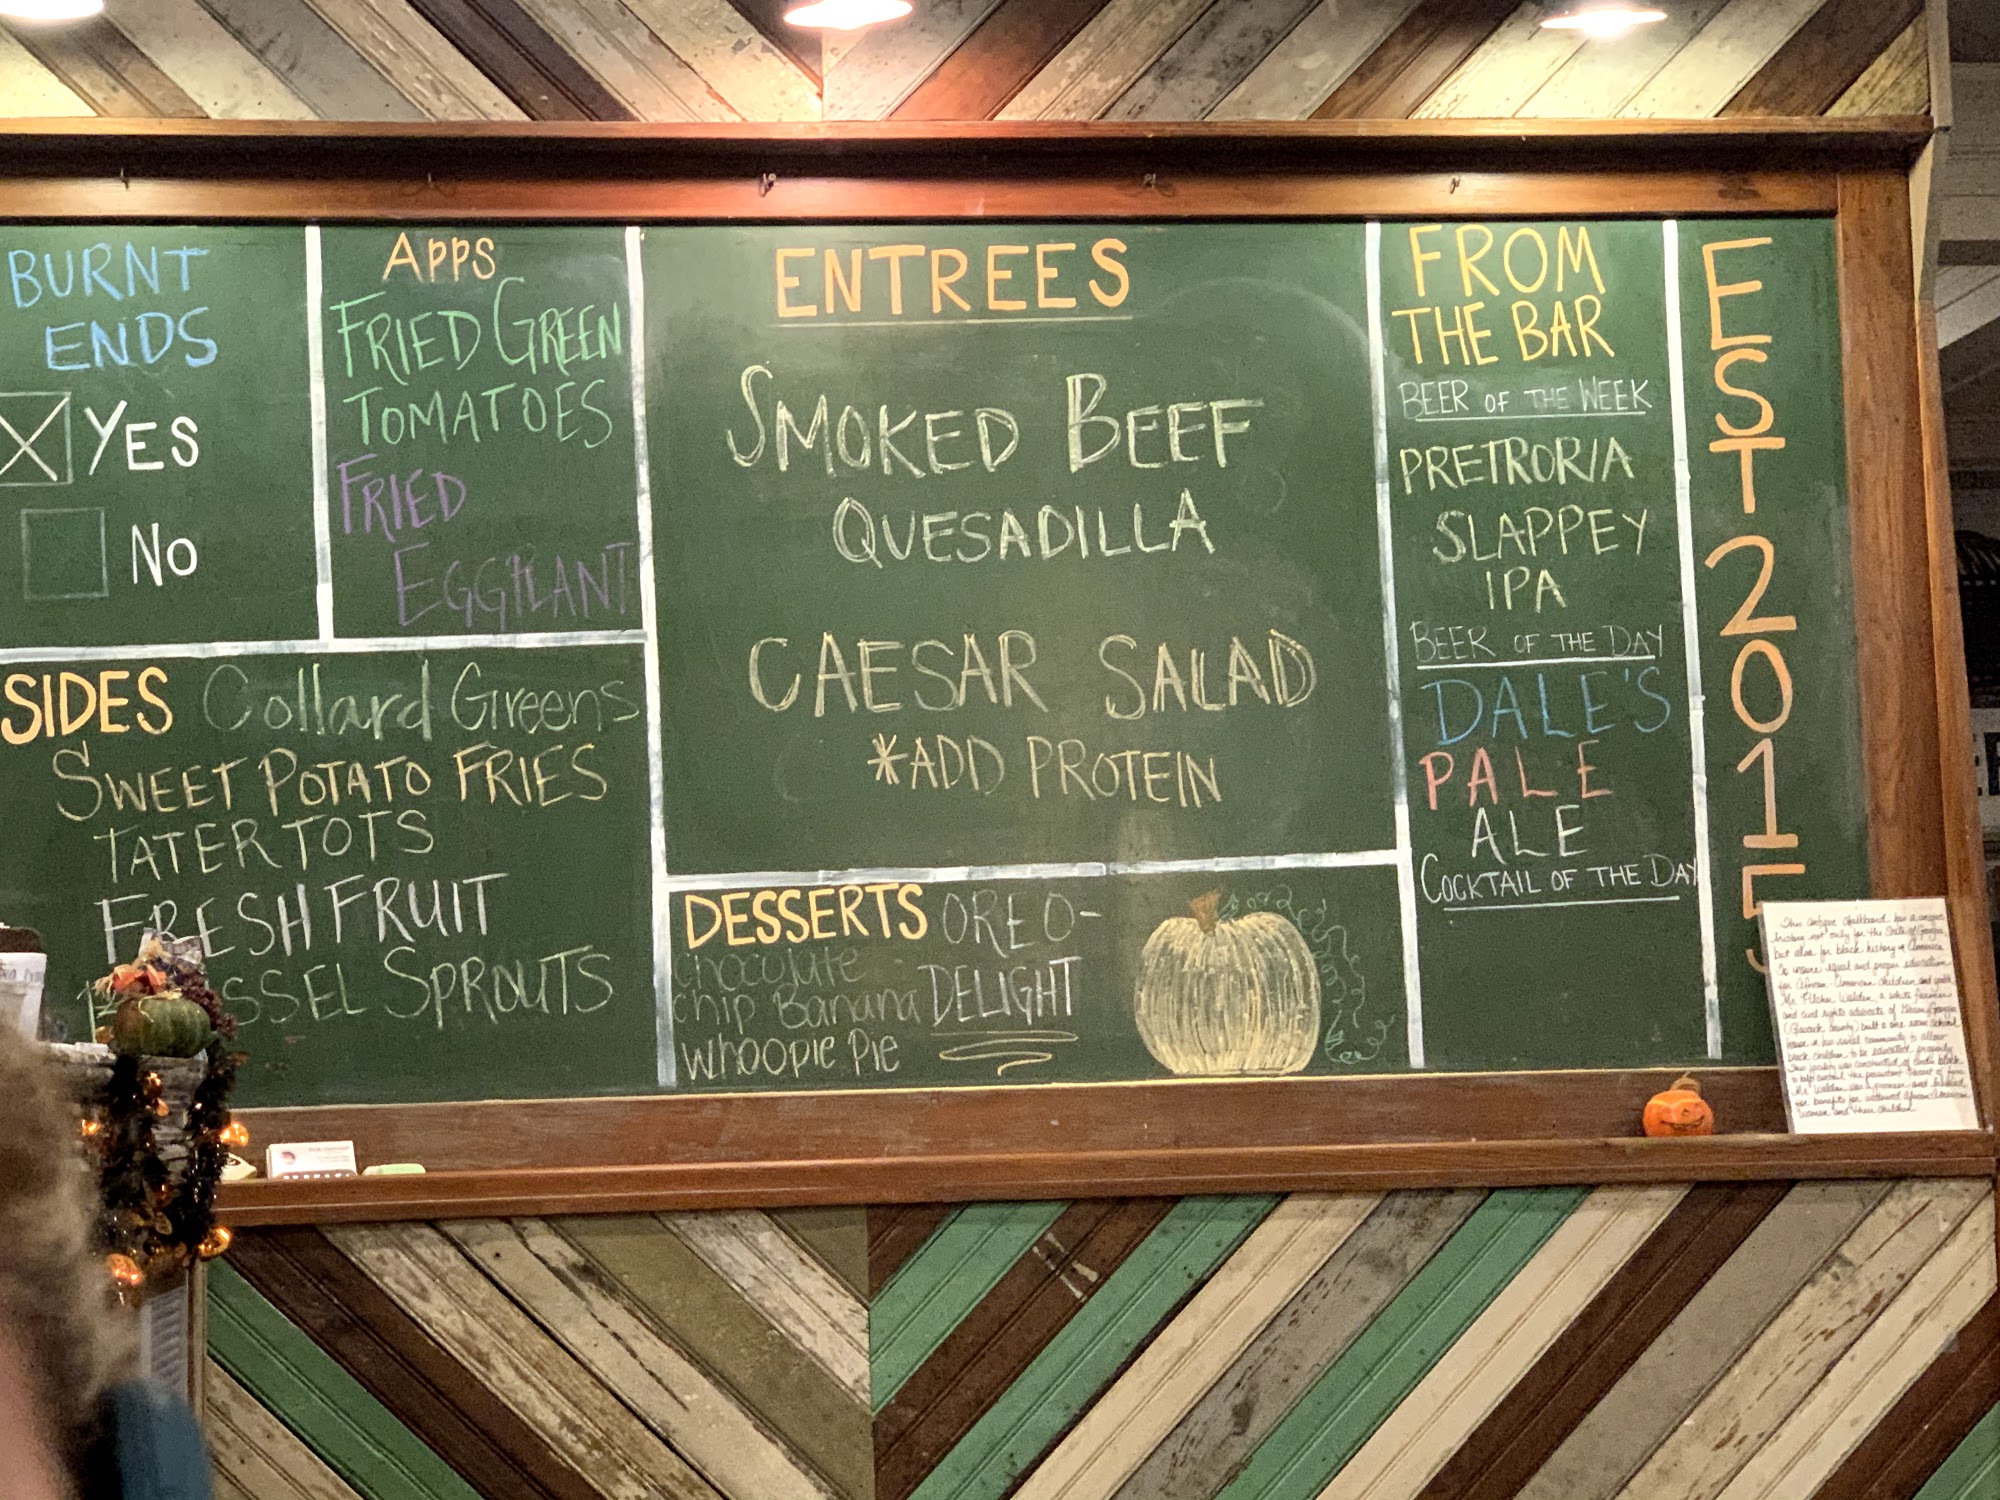 BURNT
ENDS
YES
NO
APPS
FRIED GREEN
TOMATOES
FRIED
EGGPLANT
SIDES Collard Greens
SWEET POTATO FRIES
TATER TOTS
FRESH FRUIT
SSEL SPROUTS
ENTREES
SMOKED BEEF
QUESADILLA
CAESAR SALAD
*ADD PROTEIN
DESSERTS OREO-
DELIGHT
chocolate
chip Banana
Whoopie Pie
FROM
THE BAR
BEER OF THE WEEK
PRETRORIA
SLAPPEY
IPA
BEER OF THE DAY
DALE'S
PALE
ALE
COCKTAIL OF THE DAY
EST 2015
This antique chalkboard has a unique
history not only for the State of Georgia
but also for black history in America
To insure equal and proper education
for African-American children and youth,
Mr. Pitcher Walden, a white farmer
and civil rights advocate of Georgia
(Glascock County) built a one room school
house in his rural community to allow
black children to be educated properly
Mr. Walden was a
for benefits for widowed African-American
women and their children